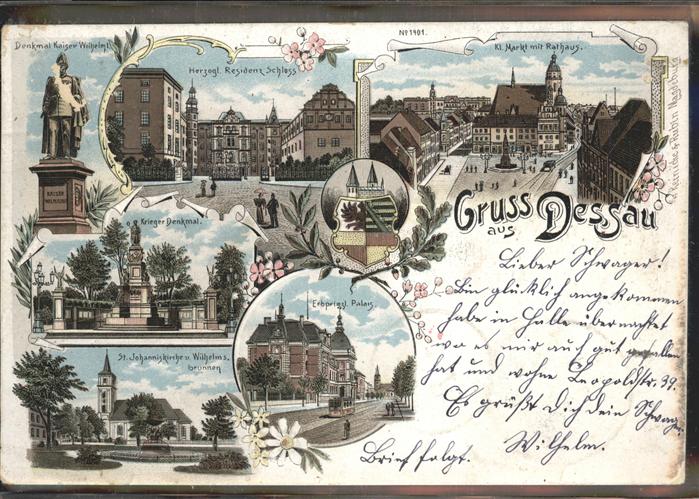 Denkmal Kaiser Wilhelm I.
Herzogl. Residenz Schloss
No 1401.
Kl. Markt mit Rathaus.
KAISER
WILHELM
Krieger Denkmal.
Gruss
aus
Dessau
Erbprinzl. Palais.
St. Johanniskirche u. Wilhelms-
brunnen
Lieber Schwager!
Bin glücklich angekommen
habe in Halle übernachtet
wo es mir auch gut gefallen
hat und wohne Leopoldstr. 39.
Es grüßt Dich dein Schwager
Wilhelm.
Brief folgt.
Magdeburg